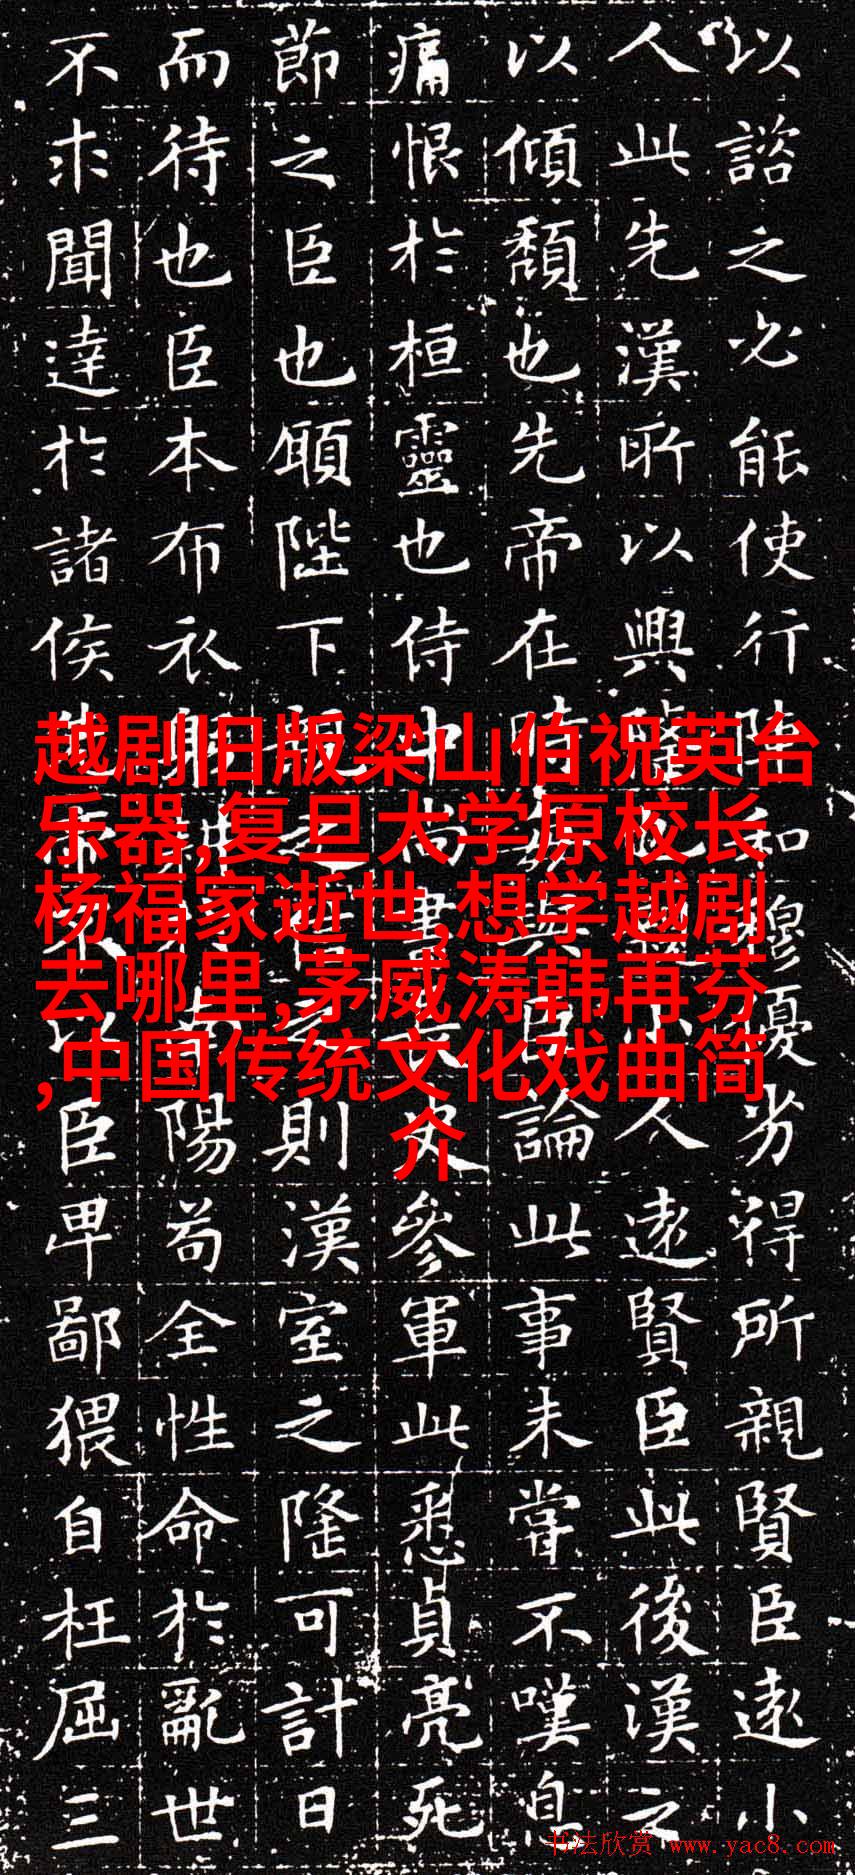 以諮之必能使行陣和穆優劣得所親賢臣遠小
人此先漢所以興隆也親小人遠賢臣此後漢之
以傾頹也先帝在時每與臣論此事未嘗不嘆息
痛恨於桓靈也侍中尚書長史參軍此悉貞亮死
節之臣也願陛下親之信之則漢室之隆可計日
而待也臣本布衣躬耕於南陽苟全性命於亂世
不求聞達於諸侯先帝不以臣卑鄙猥自枉屈三
越剧旧版梁山伯祝英台
乐器,复旦大学原校长
杨福家逝世,想学越剧
去哪里,茅威涛韩再芬
,中国传统文化戏曲简
介
书法欣赏 www.yac8.com